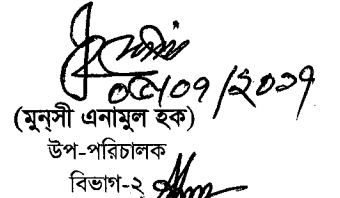 ০৫/০৭/২০১৭
(মুন্সী এনামুল হক)
উপ-পরিচালক
বিভাগ-২